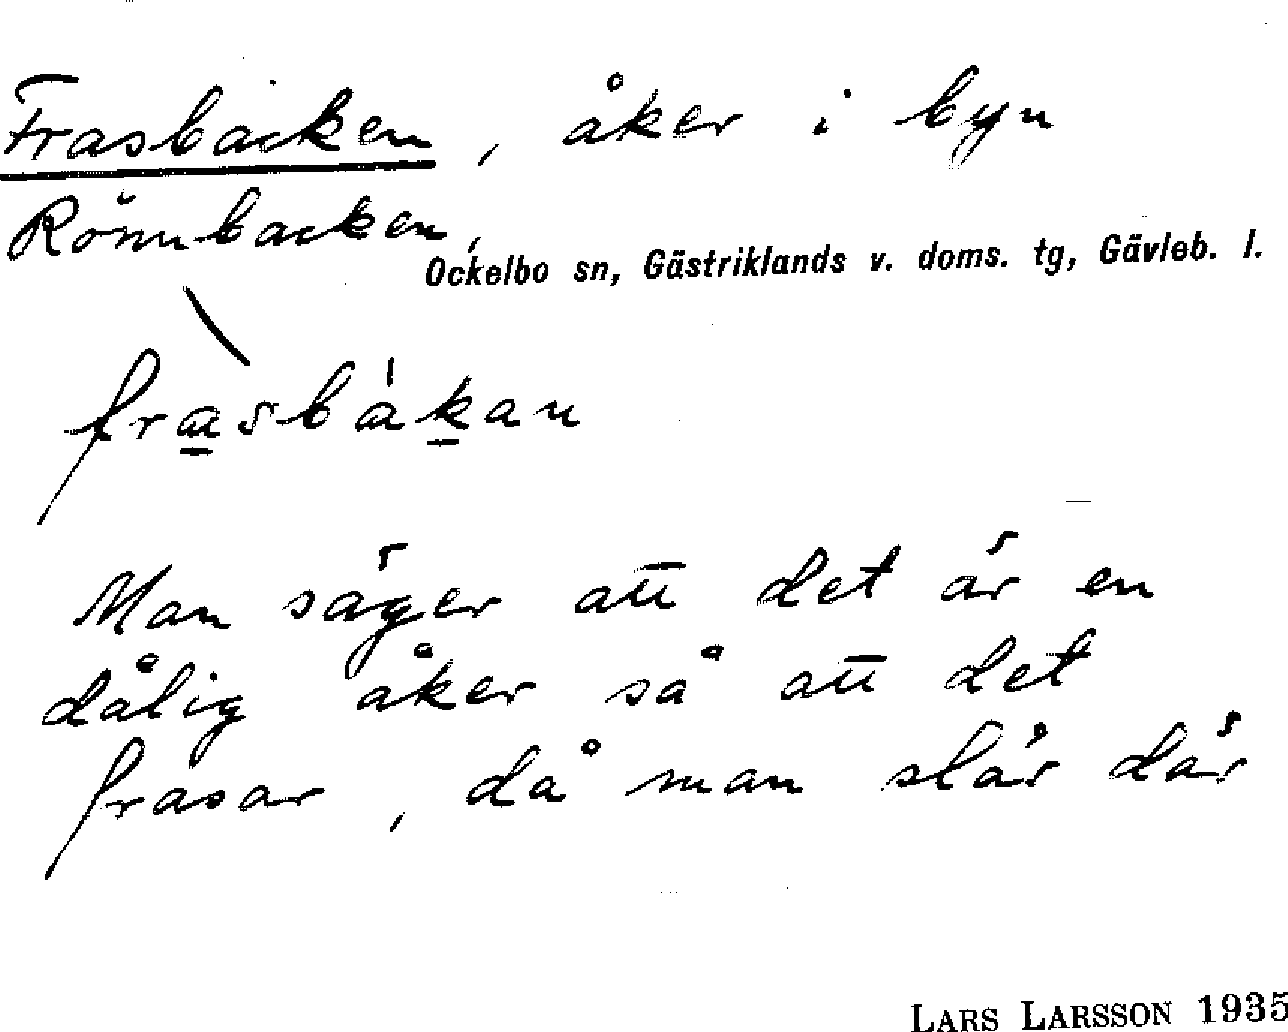 Frasbacken, åker i byn
Rönnbacken,
Ockelbo sn, Gästriklands v. doms. tg, Gävleb. l.
fràsbákan
Man säger att det är en
dålig åker så att det
frasar, då man slår där
LARS LARSSON 1935